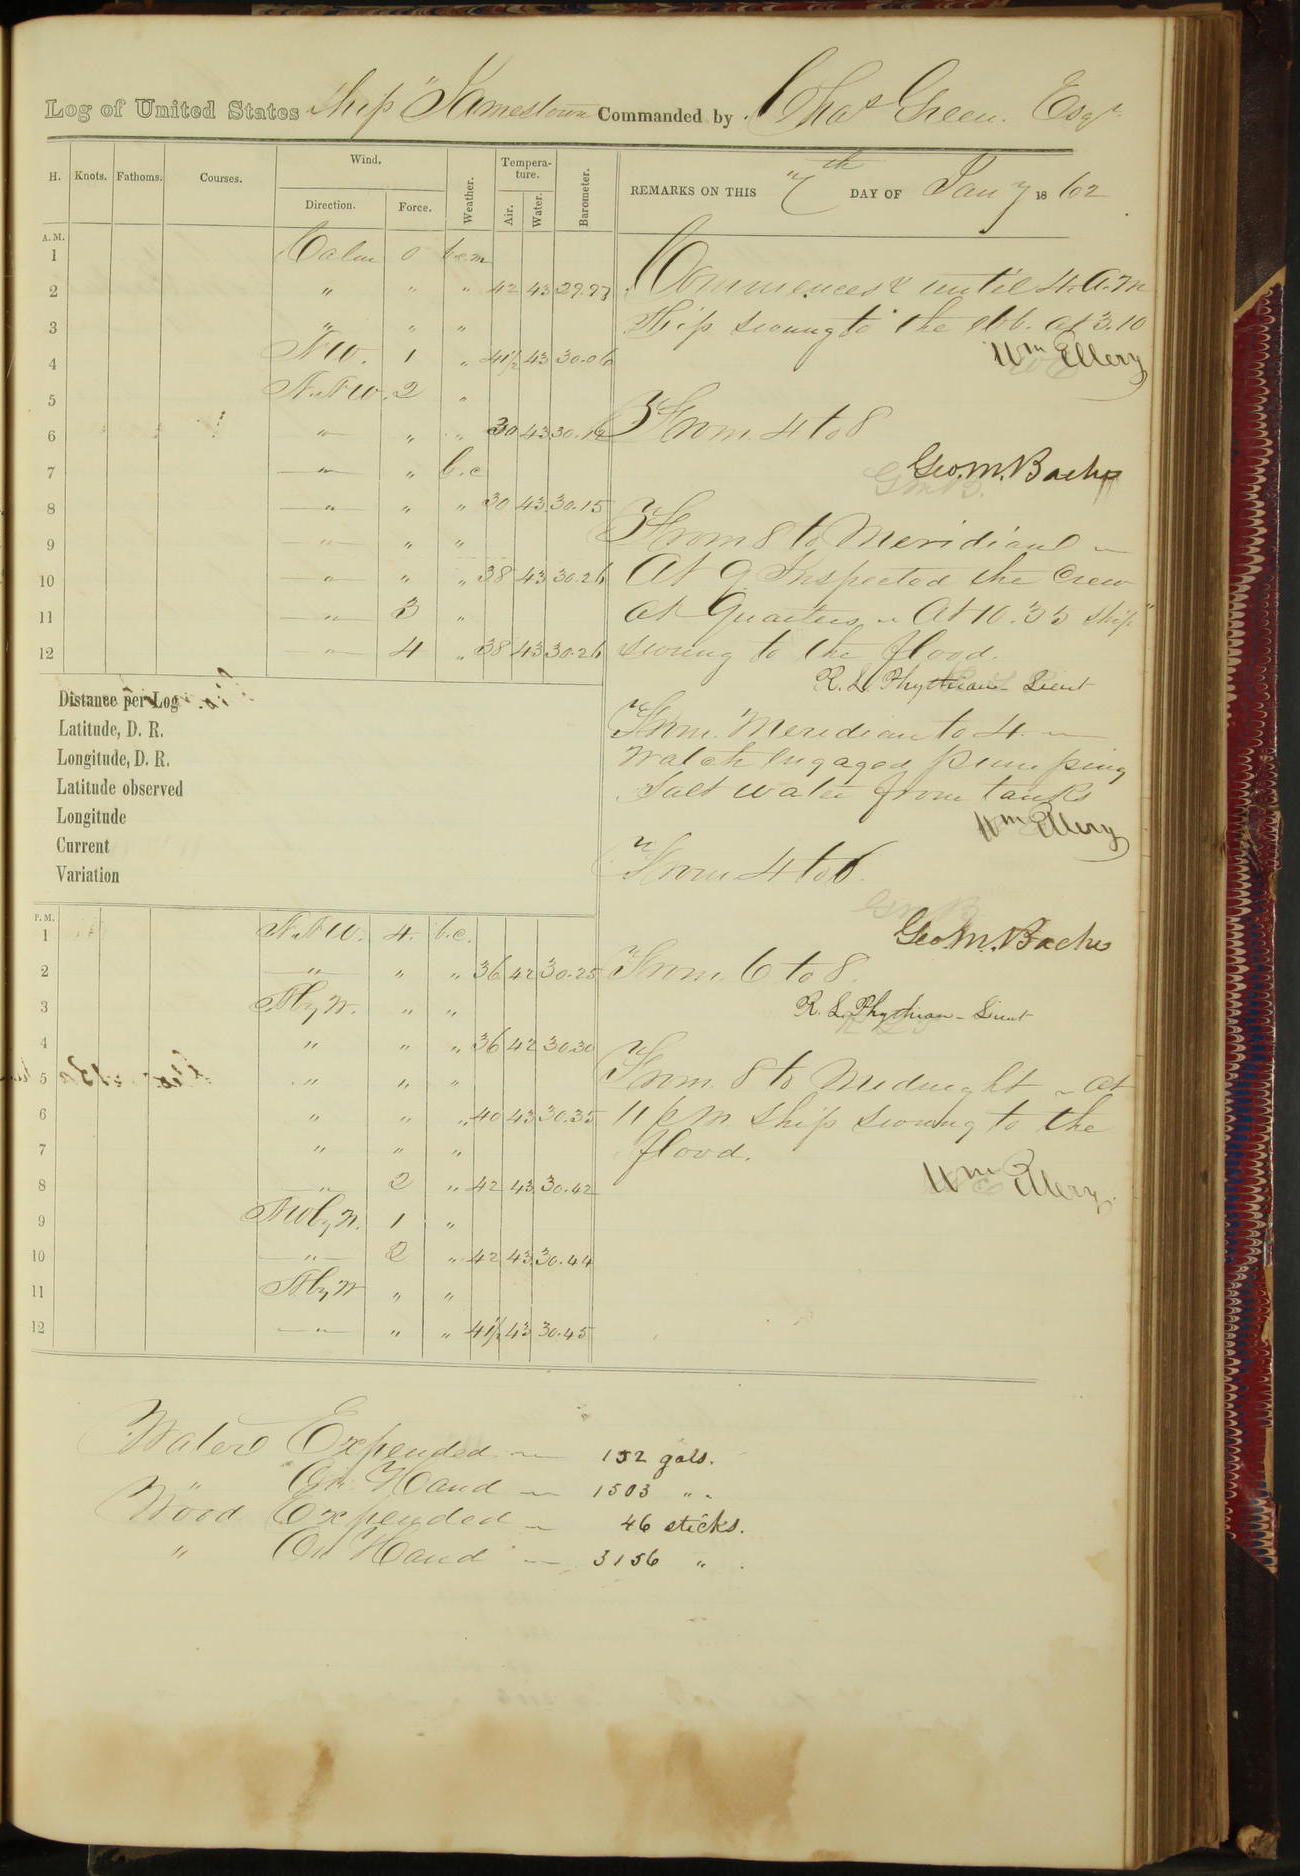 Log of United States Ship "Jamestown Commanded by Chas Green. Esqr.
H. Knots. Fathoms. Courses. Wind, Direction. Force. Weather. Temperature. Air. Water. Barometer. REMARKS ON THIS 7th DAY OF Jany 1862
A. M.
1 Calm 0 b.c.m
2 " " " 42 43 29.97
3 " " "
4 N.W. 1 " 41½ 43 30.06
5 N.N.W. 2 "
6 " " " 30 43 30.12
7 " " b.c
8 " " " 30 43 30.15
9 " " "
10 " " " 38 43 30.26
11 " 3 "
12 " 4 " 38 43 30.26
Commences & until 4. A.M
Ship swung to the ebb. at 3.10
Wm Ellery
From 4 to 8
Geo. M. Bache
From 8 to Meridian
At 9 Inspected the crew
at Quarters. At 10.35 ship
swung to the flood.
R. L. Phythian - Lieut
From Meridian to 4.
Watch engaged pumping
Salt water from tanks
Wm Ellery
From 4 to 6.
Geo. M. Bache
From 6 to 8.
R. L. Phythian - Lieut
From 8 to Midnight At
11 p m ship swung to the
flood.
Wm Ellery.
Distance per Log
Latitude, D. R.
Longitude, D. R.
Latitude observed
Longitude
Current
Variation
P. M.
1 N.N.W. 4. b.c.
2 " " " 36 42 30.25
3 N by W. " "
4 " " " 36 42 30.30
5 " " "
6 " " " 40 43 30.35
7 " " "
8 " 2 " 42 43 30.42
9 NW by N. 1 "
10 " 2 " 42 43 30.44
11 N by W " "
12 " " " 41½ 43 30.45
Water Expended 152 gals.
" On Hand 1503 "
Wood Expended 46 sticks.
" On Hand 3156 "